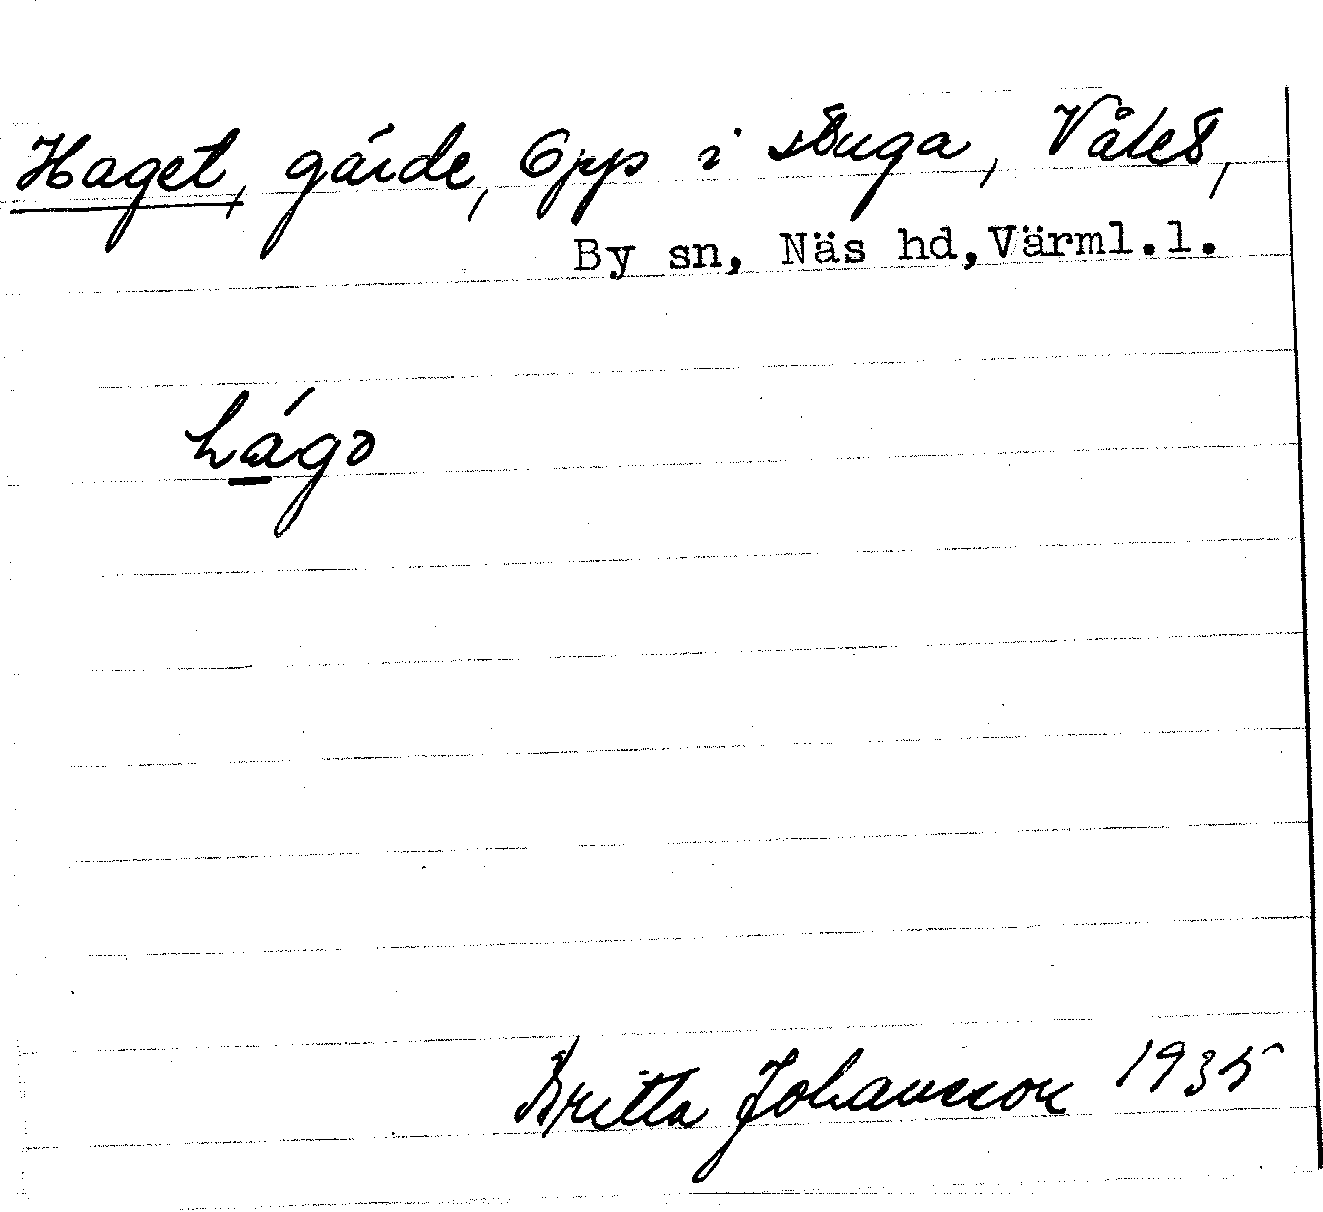 Haget, gärde, Opp i stuga, Våket,
By sn, Näs hd, Värml.l.
hágo
Britta Johansson 1935